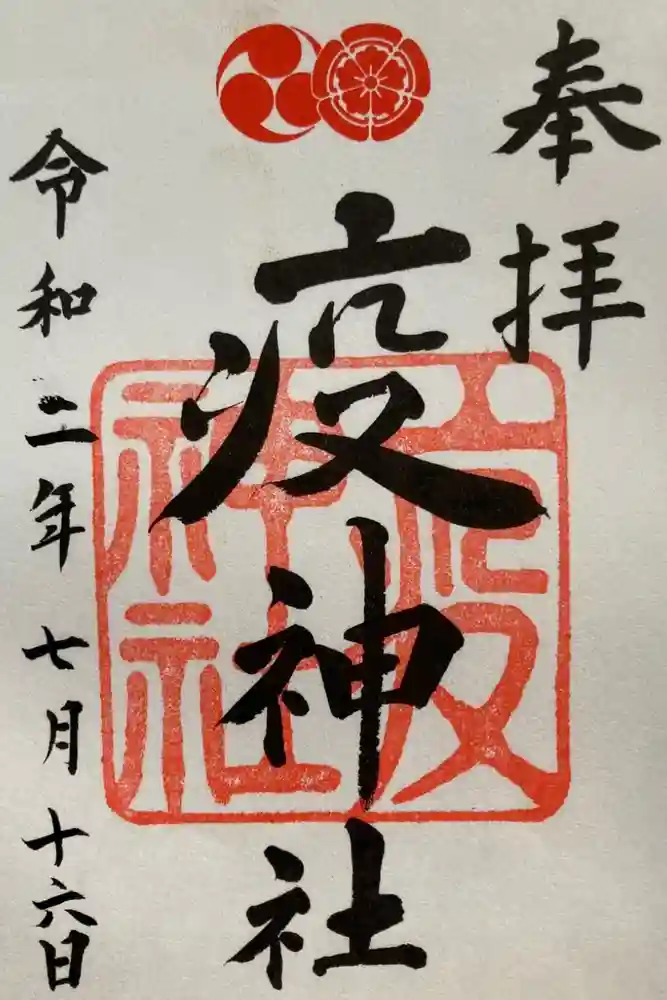 奉拝
疫神社
疫神社
令和二年七月十六日